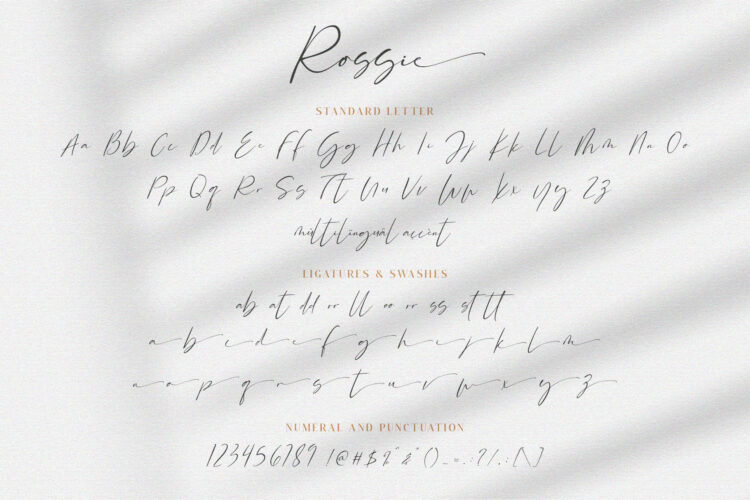 Rossie
STANDARD LETTER
Aa Bb Cc Dd Ee Ff Gg Hh Ii Jj Kk Ll Mm Nn Oo
Pp Qq Rr Ss Tt Uu Vv Ww Xx Yy Zz
multilingual accent
LIGATURES & SWASHES
ab at dd or ll oe or ss st tt
a b c d e f g h i j k l m
n o p q r s t u v w x y z
NUMERAL AND PUNCTUATION
123456789